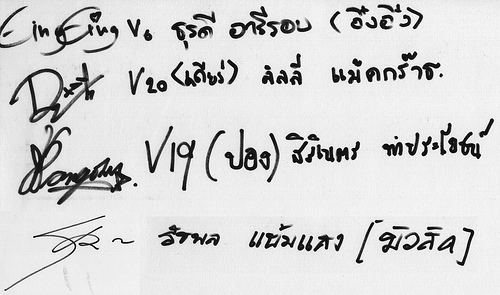 EingEing V6 ธุรดี อารีรอบ (อึ่งอึ่ง)
V20 (เกียร์) ลิลลี่ แม้คกร๊าธ.
V19 (ปอง) สิรินตร ทำประโยชน์
รัชพล แย้มแสง [มิวสิค]